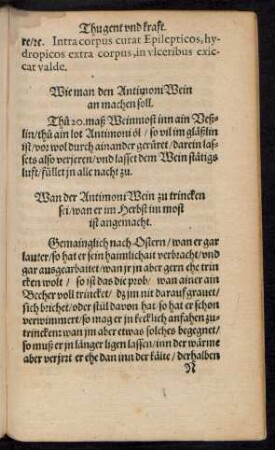 Thugent vnd krafft.
re/ꝛc. Intra corpus curat Epilepticos, hy-
dropicos extra corpus, in vlceribus exic-
cat valde.
Wie man den Antimoni Wein
an machen soll.
Thů 20. maß Weinmost inn ain Veß-
lin/thů ain lot Antimoni ől / so vil im gläßlin
ist/vor wol durch ainander gerüret/darein las-
sets also verjeren/vnd lasset dem Wein stätigs
lufft/füllet jn alle nacht zu.
Wan der Antimoni Wein zu trincken
sei/wan er im Herbst im most
ist angemacht.
Gemainglich nach Ostern/wan er gar
lauter/so hat er sein haimlichait verbracht/vnd
gar ausgearbaitet/wan jr jn aber gern ehe trin
cken wolt / so ist das die prob/ wan ainer ain
Becher voll trincket / dz jm nit darauf grauet/
sich brichet/oder stül davon hat/so hat er schon
verwimmert/so mag er jn kecklich anfahen zu-
trincken: wan jm aber etwas solches begegnet/
so muß er jn länger ligen lassen/inn der wärme
aber verjert er ehe dan inn der kälte/derhalben
N